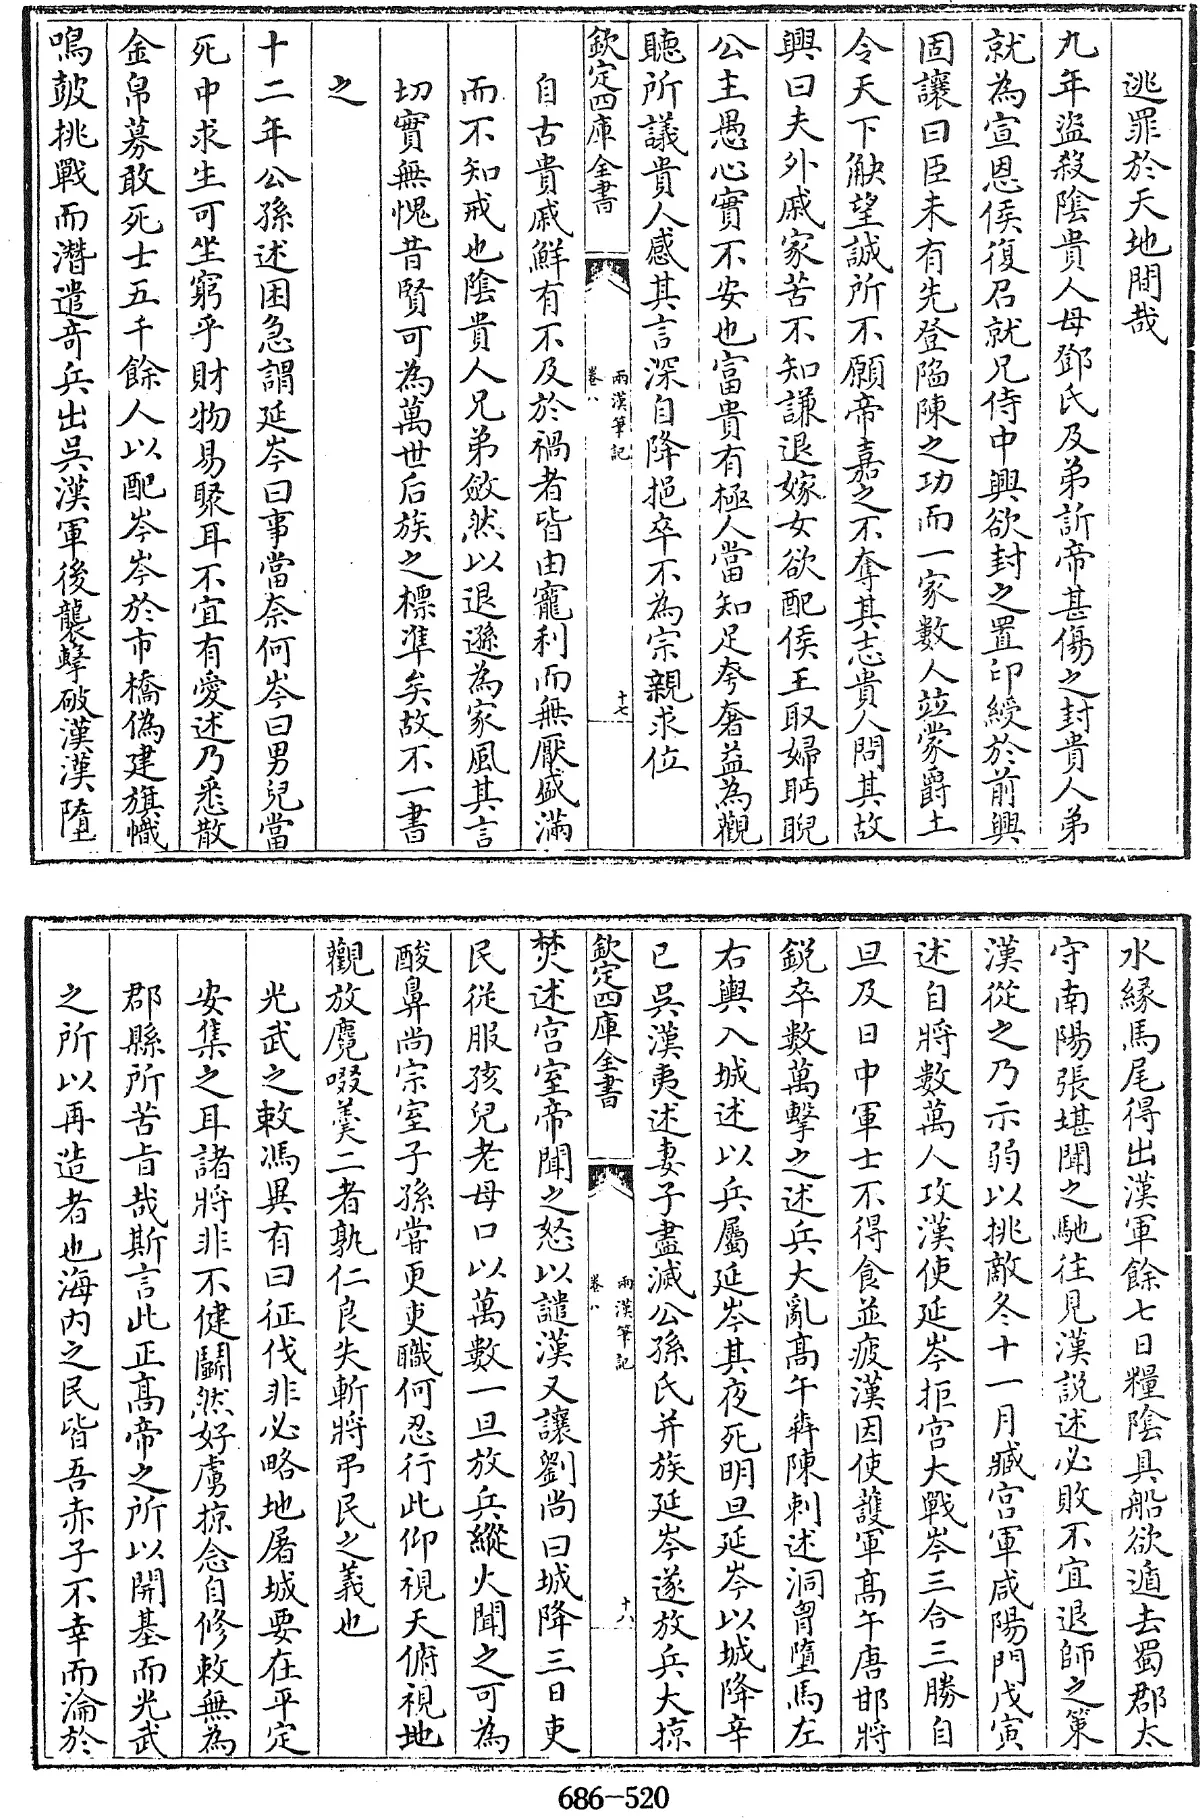 逃罪於天地間哉
九年盜殺陰貴人母鄧氏及弟訢帝甚傷之封貴人弟
就為宣恩侯復召就兄侍中興欲封之置印綬於前興
固讓曰臣未有先登陷陳之功而一家數人並蒙爵土
令天下觖望誠所不願帝嘉之不奪其志貴人問其故
興曰夫外戚家苦不知謙退嫁女欲配侯王取婦眄睨
公主愚心實不安也富貴有極人當知足夸奢益為觀
聽所議貴人感其言深自降挹卒不為宗親求位
欽定四庫全書
兩漢筆記
卷八
十七
自古貴戚鮮有不及於禍者皆由寵利而無厭盛滿
而不知戒也陰貴人兄弟斂然以退遜為家風其言
切實無愧昔賢可為萬世后族之標準矣故不一書
之
十二年公孫述困急謂延岑曰事當奈何岑曰男兒當
死中求生可坐窮乎財物易聚耳不宜有愛述乃悉散
金帛募敢死士五千餘人以配岑岑於市橋偽建旗幟
鳴鼓挑戰而潛遣奇兵出吳漢軍後襲擊破漢漢墮
水緣馬尾得出漢軍餘七日糧陰具船欲遁去蜀郡太
守南陽張堪聞之馳往見漢說述必敗不宜退師之策
漢從之乃示弱以挑敵冬十一月臧宮軍咸陽門戊寅
述自將數萬人攻漢使延岑拒宮大戰岑三合三勝自
旦及日中軍士不得食並疲漢因使護軍高午唐邯將
銳卒數萬擊之述兵大亂高午犇陳刺述洞胷墮馬左
右輿入城述以兵屬延岑其夜死明旦延岑以城降辛
已吳漢夷述妻子盡滅公孫氏并族延岑遂放兵大掠
欽定四庫全書
兩漢筆記
卷八
十八
焚述宮室帝聞之怒以譴漢又讓劉尚曰城降三日吏
民從服孩兒老母口以萬數一旦放兵縱火聞之可為
酸鼻尚宗室子孫嘗更吏職何忍行此仰視天俯視地
觀放麑啜羹二者孰仁良失斬將弔民之義也
光武之敕馮異有曰征伐非必略地屠城要在平定
安集之耳諸將非不健鬬然好虜掠念自修敕無為
郡縣所苦旨哉斯言此正高帝之所以開基而光武
之所以再造者也海內之民皆吾赤子不幸而淪於
686-520